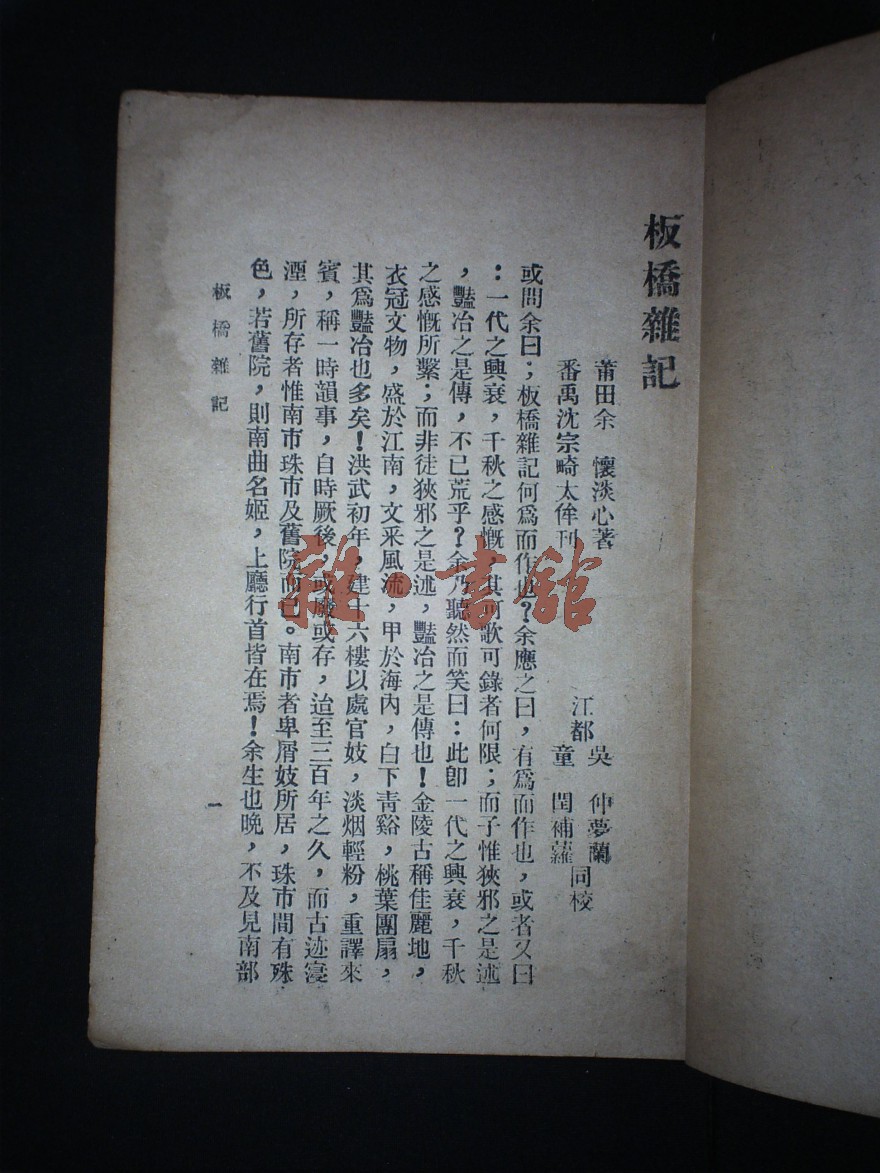 板橋雜記
莆田余　懷淡心著
番禹沈宗畸太侔刊
江都
吳　仲夢蘭
童　閏補蘿
同校
或問余曰；板橋雜記何爲而作也？余應之曰，有爲而作也，或者又曰
：一代之興衰，千秋之感慨，其可歌可錄者何限；而子惟狹邪之是述
，豔冶之是傳，不已荒乎？余乃聽然而笑曰：此卽一代之興衰，千秋
之感慨所繫；而非徒狹邪之是述，豔冶之是傳也！金陵古稱佳麗地，
衣冠文物，盛於江南，文采風流，甲於海內，白下青谿，桃葉團扇，
其爲豔冶也多矣！洪武初年，建十六樓以處官妓，淡烟輕粉，重譯來
賓，稱一時韻事，自時厥後，或廢或存，迨至三百年之久，而古迹寖
湮，所存者惟南市珠市及舊院而已。南市者卑屑妓所居，珠市間有殊
色，若舊院，則南曲名姬，上廳行首皆在焉！余生也晚，不及見南部
板橋雜記
一
雜·書館